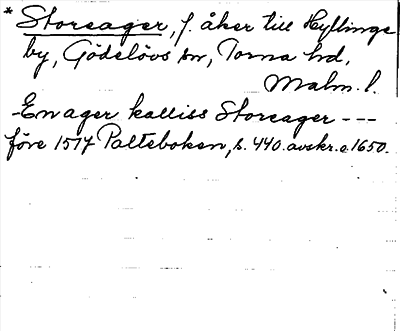 * Storeager, f. åker till Hyllinge
by, Gödelövs sn, Torna hd,
Malm. l.
-En ager kalliss Storeager ---
före 1517 Palteboken, s. 440. avskr. c. 1650.